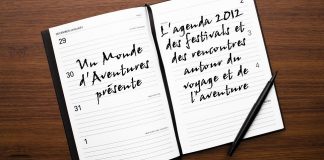 29
30
31
1
Un Monde
d'Aventures
présente
L'agenda 2012
des festivals et
des rencontres
autour du
voyage et de
l'aventure